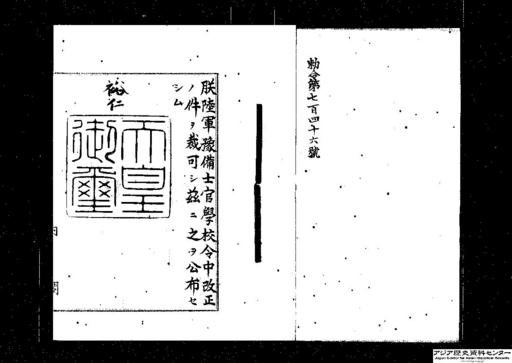 勅令第七百四十六號
朕陸軍豫備士官學校令中改正
ノ件ヲ裁可シ茲ニ之ヲ公布セ
シム
裕仁
天皇
御璽
内
閣
アジア歴史資料センター
Japan Center for Asian Historical Records